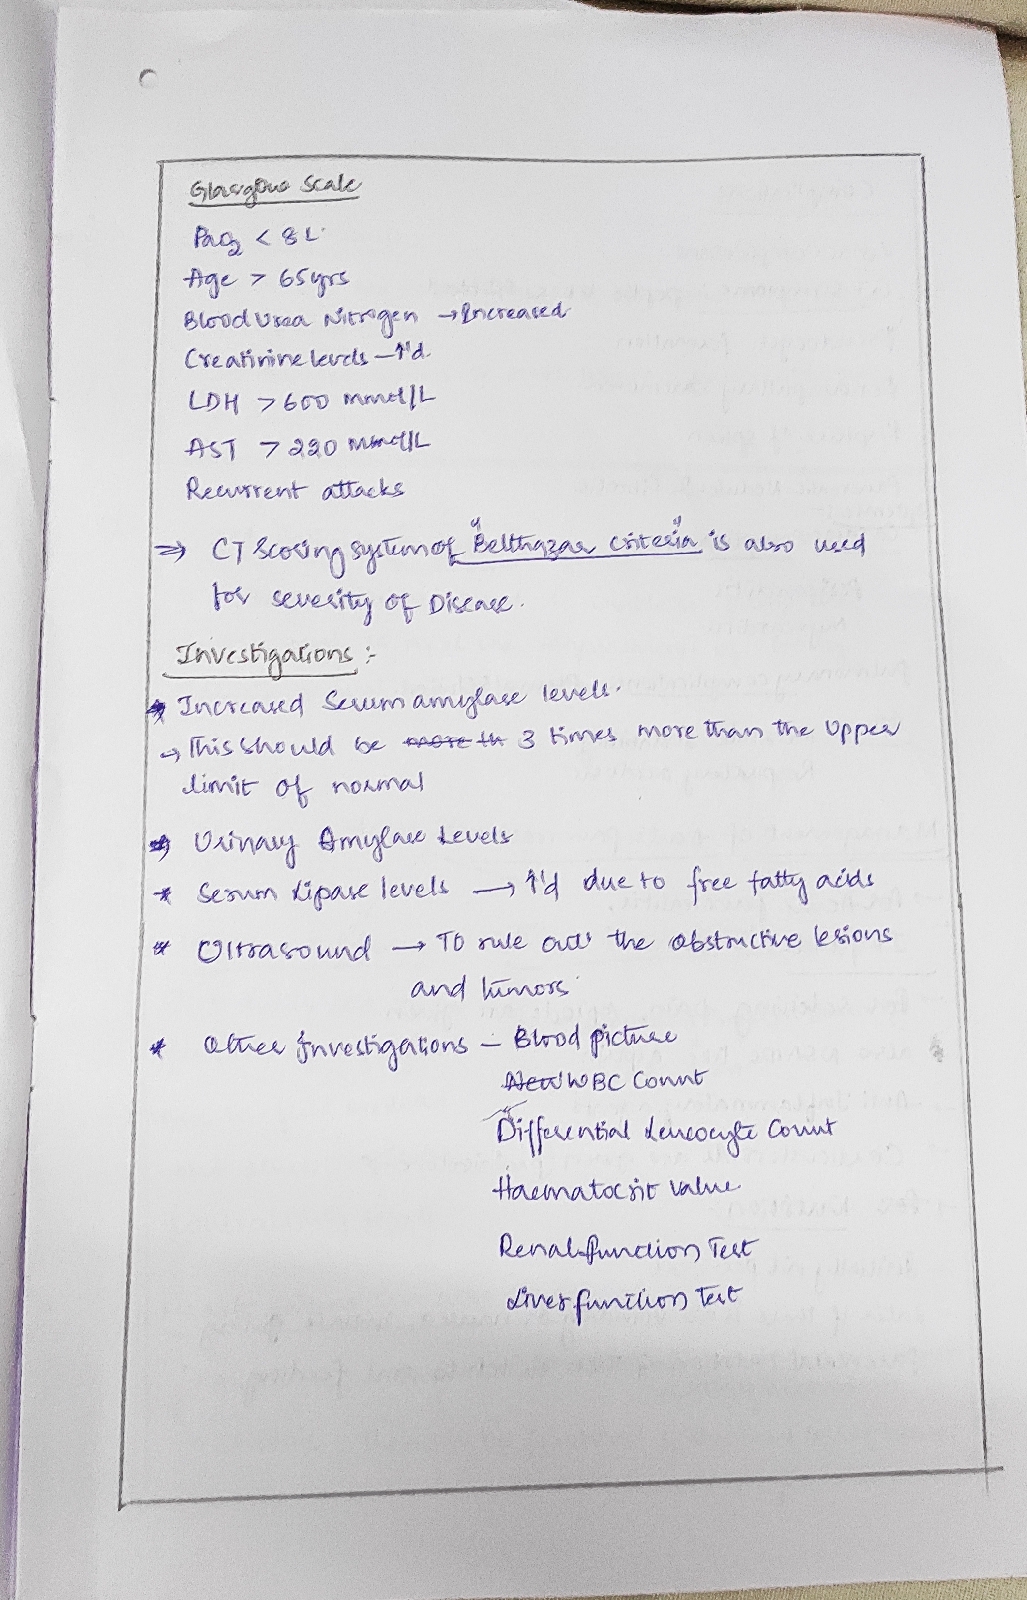 Glasgow Scale
PaO2 < 8L
Age > 65yrs
Blood Urea Nitrogen → Increased
Creatinine levels – ↑'d.
LDH > 600 mmol/L
AST > 220 mmol/L
Recurrent attacks
⇒ CT Scoring system of "Belthazar criteria" is also used
for severity of Disease.
Investigations :-
* Increased Serum amylase levels.
→ This should be more th 3 times more than the upper
limit of normal
* Urinary Amylase Levels
* Serum Lipase levels → ↑'d due to free fatty acids
* Ultrasound → To rule out the obstructive lesions
and tumors
* Other Investigations – Blood picture
New WBC Count
Differential Leucocyte Count
Haematocrit value
Renal function Test
Liver function Test